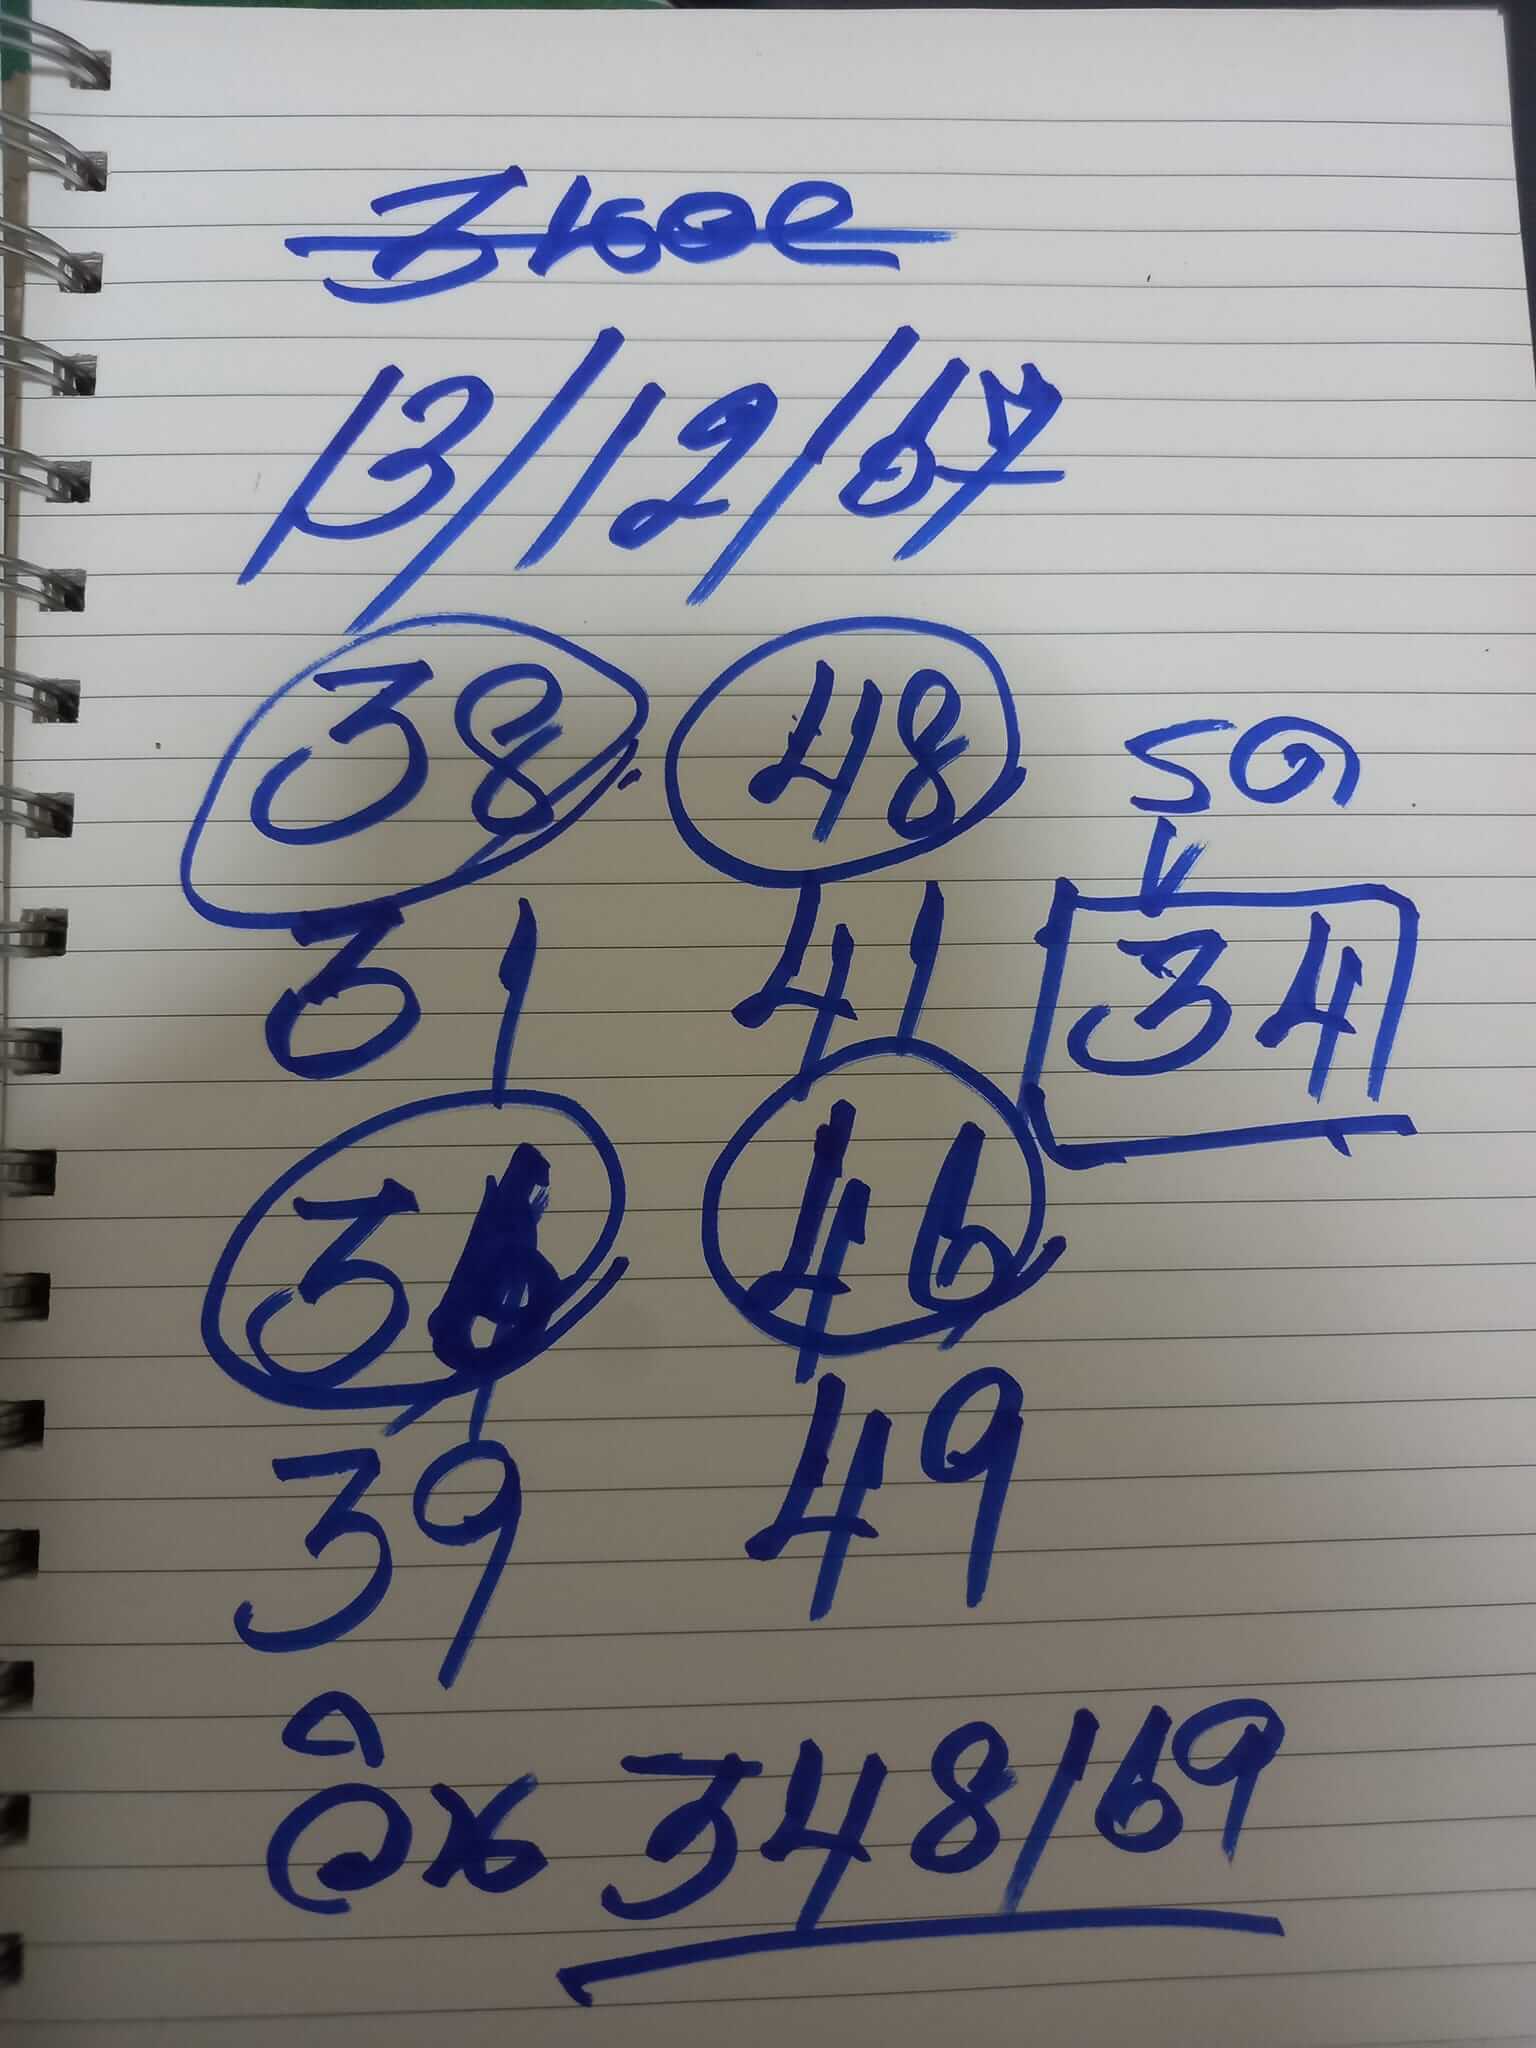 13/12/67
38 48
รูด
31 41 34
36 46
39 49
วิน 348/69